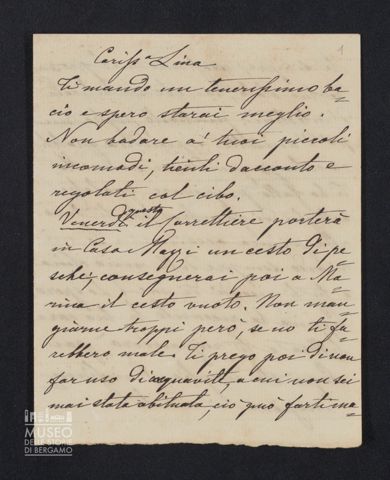 1
Cariss.a Lina
Ti mando un tenerissimo ba=
cio e spero starai meglio.
Non badare a' tuoi piccoli
incomodi, tienti dacconto e
regolati col cibo.
questo
Venerdì il Carrettiere porterà
in Casa Mazzi un cesto di pe=
sche; consegnerai poi a Ma=
rina il cesto vuoto. Non man=
giarne troppi però, se no ti fa=
rebbero male. Ti prego poi di non
far uso di acquavite, a cui non sei
mai stata abituata, ciò può farti ma=
MUSEO
DELLE STORIE
DI BERGAMO